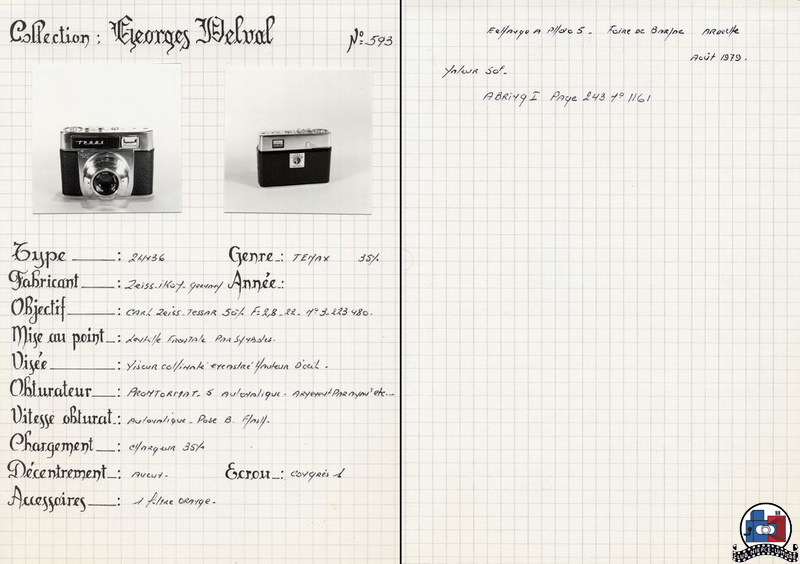 Collection : Georges Delval Nº 593
Tenax
Type : 24x36 Genre : TENAX 35%
Fabricant : Zeiss. ikon. Année :
Objectif : CARL Zeiss. Tessar 50% F: 2,8 - 22 - Nº 3.223 480.
Mise au point : Lentille Frontale Par Symboles.
Visée : Viseur collimaté Hauteur D'oeil.
Obturateur : PRONTORMAT. S Automatique. etc...
Vitesse obturat. : Automatique - Pose B. Flash.
Chargement : Chargeur 35%
Décentrement : Aucun. Ecrou : Congrès 1
Accessoires : 1 filtre ORANGE.
Echange A Photo S. Foire de Ardèche
Août 1979.
Valeur 50f.
ABRING I Page 243 Nº 1161